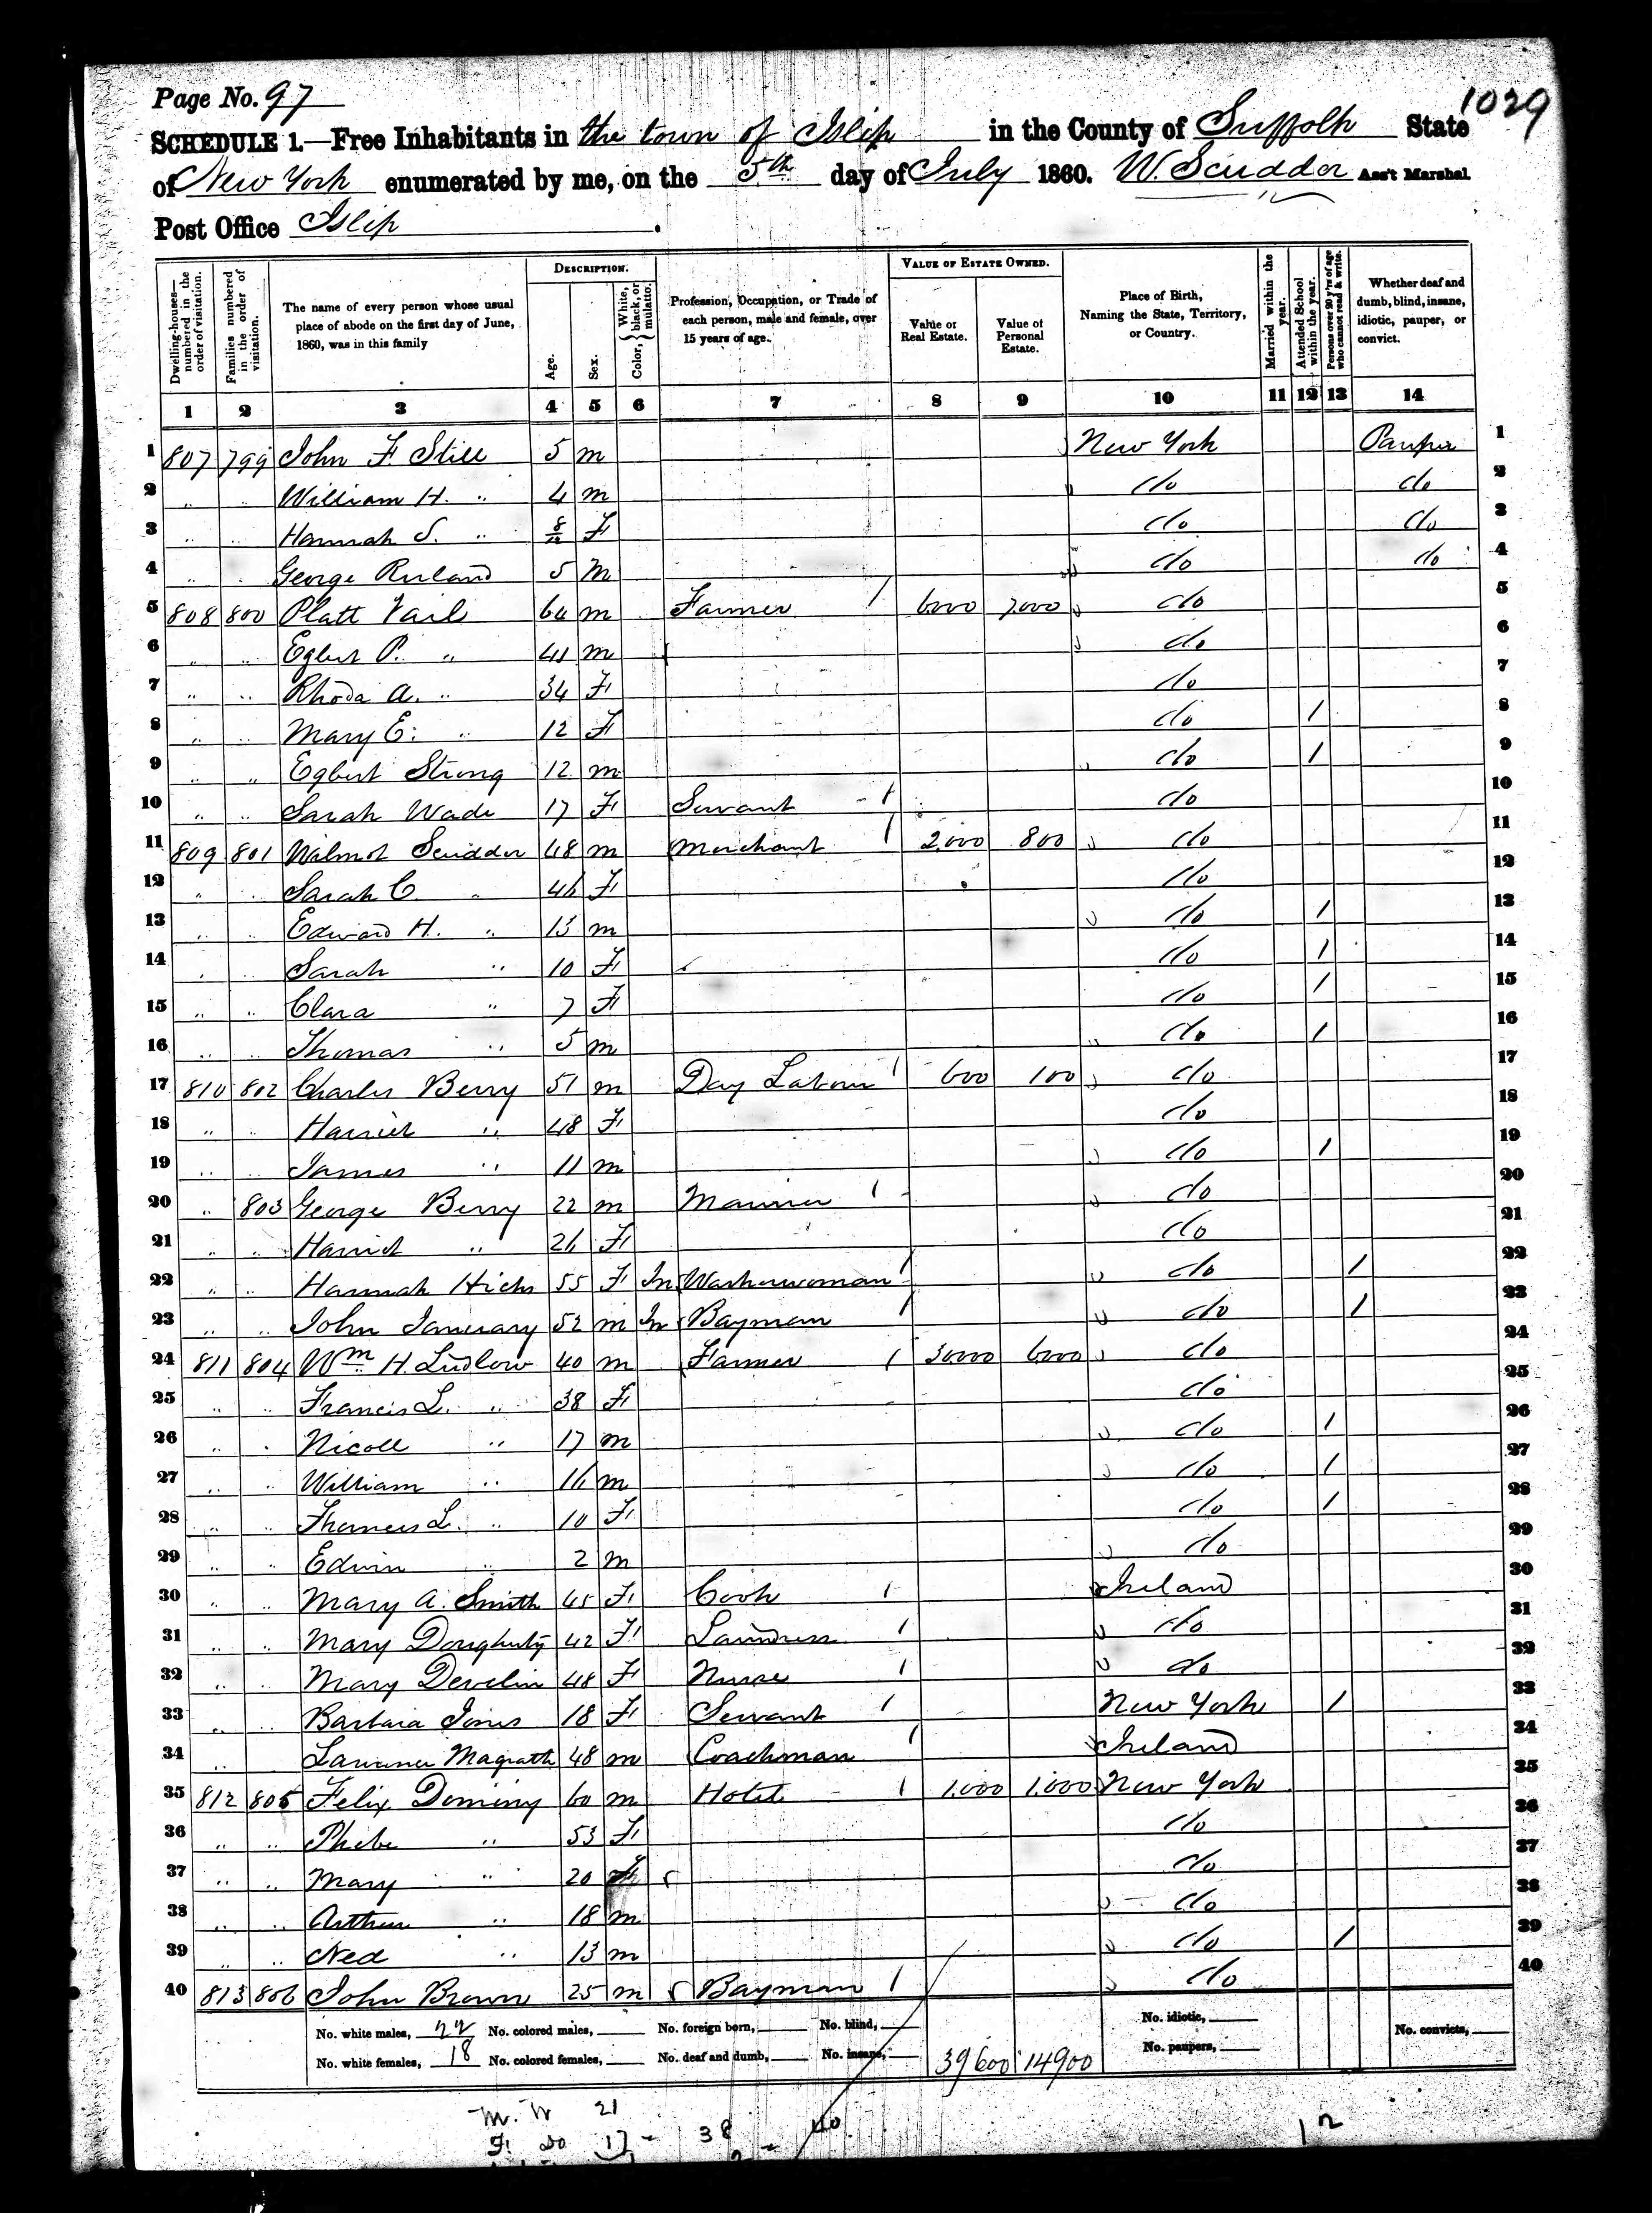 Page No. 97
1029
SCHEDULE 1.—Free Inhabitants in the town of Islip in the County of Suffolk State
of New York enumerated by me, on the 5th day of July 1860. W. Scudder Ass't Marshal.
Post Office Islip.
Dwelling-houses—numbered in the order of visitation. Families numbered in the order of visitation. The name of every person whose usual place of abode on the first day of June, 1860, was in this family DESCRIPTION. Age. Sex. Color, White, black, or mulatto. Profession, Occupation, or Trade of each person, male and female, over 15 years of age. VALUE OF ESTATE OWNED. Value of Real Estate. Value of Personal Estate. Place of Birth, Naming the State, Territory, or Country. Married within the year. Attended School within the year. Persons over 20 y'rs of age who cannot read & write. Whether deaf and dumb, blind, insane, idiotic, pauper, or convict.
1 2 3 4 5 6 7 8 9 10 11 12 13 14
1 807 799 John F. Still 5 m New York Pauper 1
2 " " William H. " 4 m do do 2
3 " " Hannah S. " 8/12 F do do 3
4 " " George Ruland 5 M do do 4
5 808 800 Platt Vail 64 m Farmer 1 6000 7000 do 5
6 " " Egbert P. " 41 m do 6
7 " " Rhoda A. " 34 F do 7
8 " " Mary E. " 12 F do 1 8
9 " " Egbert Strong 12 m do 1 9
10 " " Sarah Wade 17 F Servant 1 do 10
11 809 801 Wilmot Scudder 48 m Merchant 1 2,000 800 do 11
12 " " Sarah C. " 46 F do 12
13 " " Edward H. " 13 m do 1 13
14 " " Sarah " 10 F do 1 14
15 " " Clara " 7 F do 1 15
16 " " Thomas " 5 m do 1 16
17 810 802 Charles Berry 51 m Day Labour 1 600 100 do 17
18 " " Harriet " 48 F do 18
19 " " James " 11 m do 1 19
20 " 803 George Berry 22 m Mariner 1 do 20
21 " " Harriet " 26 F do 21
22 " " Hannah Hicks 55 F In Washerwoman 1 do 1 22
23 " " John January 52 m In Bayman 1 do 1 23
24 811 804 Wm H. Ludlow 40 m Farmer 1 30000 6000 do 24
25 " " Francis L. " 38 F do 25
26 " " Nicoll " 17 m do 1 26
27 " " William " 16 m do 1 27
28 " " Frances L. " 10 F do 1 28
29 " " Edwin " 2 m do 29
30 " " Mary A. Smith 45 F Cook 1 Ireland 30
31 " " Mary Dougherty 42 F Laundress 1 do 31
32 " " Mary Develin 48 F Nurse 1 do 32
33 " " Barbara Jones 18 F Servant 1 New York 1 33
34 " Lawrence Magrath 48 m Coachman 1 Ireland 34
35 812 805 Felix Dominy 60 m Hotel 1 1,000 1,000 New York 35
36 " " Phebe " 53 F do 36
37 " " Mary " 20 F do 37
38 " " Arthur " 18 m do 38
39 " " Ned " 13 m do 1 39
40 813 806 John Brown 25 m Bayman 1 do 40
No. white males, 22 No. colored males, No. foreign born, No. blind, No. idiotic, No. convicts,
No. white females, 18 No. colored females, No. deaf and dumb, No. insane, 39600 14900 No. paupers,
M. W 21
F. Do 17 - 38 40 12